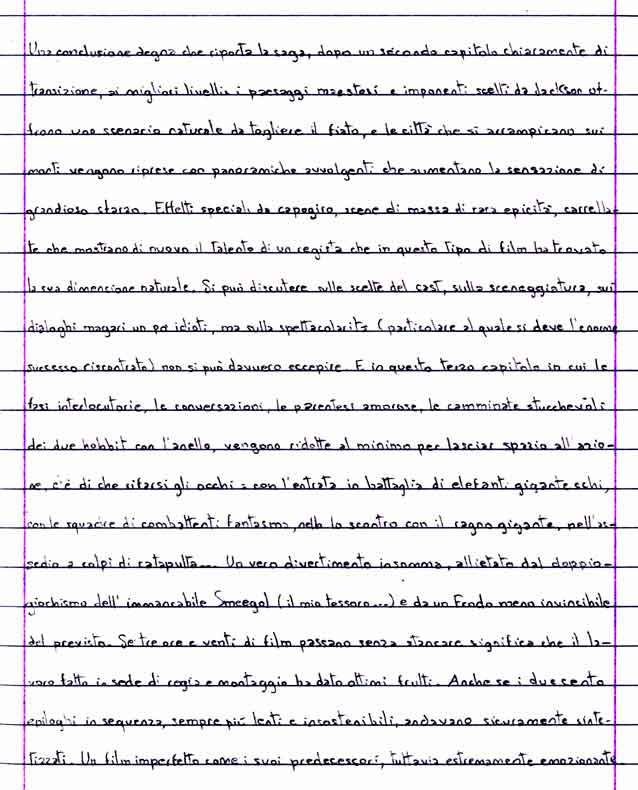 Una conclusione degna che riporta la saga, dopo un secondo capitolo chiaramente di
transizione, ai migliori livelli: i paesaggi maestosi e imponenti scelti da Jackson of-
frono uno scenario naturale da togliere il fiato, e le città che si arrampicano sui
monti vengono riprese con panoramiche avvolgenti che aumentano la sensazione di
grandioso sfarzo. Effetti speciali da capogiro, scene di massa di rara epicità, carrella-
te che mostrano di nuovo il talento di un regista che in questo tipo di film ha trovato
la sua dimensione naturale. Si può discutere sulle scelte del cast, sulla sceneggiatura, sui
dialoghi magari un po' idioti, ma sulla spettacolarità (particolare al quale si deve l'enorme
successo riscontrato) non si può davvero eccepire. E in questo terzo capitolo in cui le
fasi interlocutorie, le conversazioni, le parentesi amorose, le camminate stucchevoli
dei due hobbit con l'anello, vengono ridotte al minimo per lasciar spazio all'azio-
ne, c'è di che rifarsi gli occhi: con l'entrata in battaglia di elefanti giganteschi,
con le squadre di combattenti fantasma, lo scontro con il ragno gigante, nell'as-
sedio a colpi di catapulta... Un vero divertimento insomma, allietato dal doppio-
giochismo dell'immancabile Smeegol (il mio tessoro...) e da un Frodo meno invincibile
del previsto. Se tre ore e venti di film passano senza stancare significa che il la-
voro fatto in sede di regia e montaggio ha dato ottimi frutti. Anche se i duecento
epiloghi in sequenza, sempre più lenti e insostenibili, andavano sicuramente sinte-
tizzati. Un film imperfetto come i suoi predecessori, tuttavia estremamente emozionante.